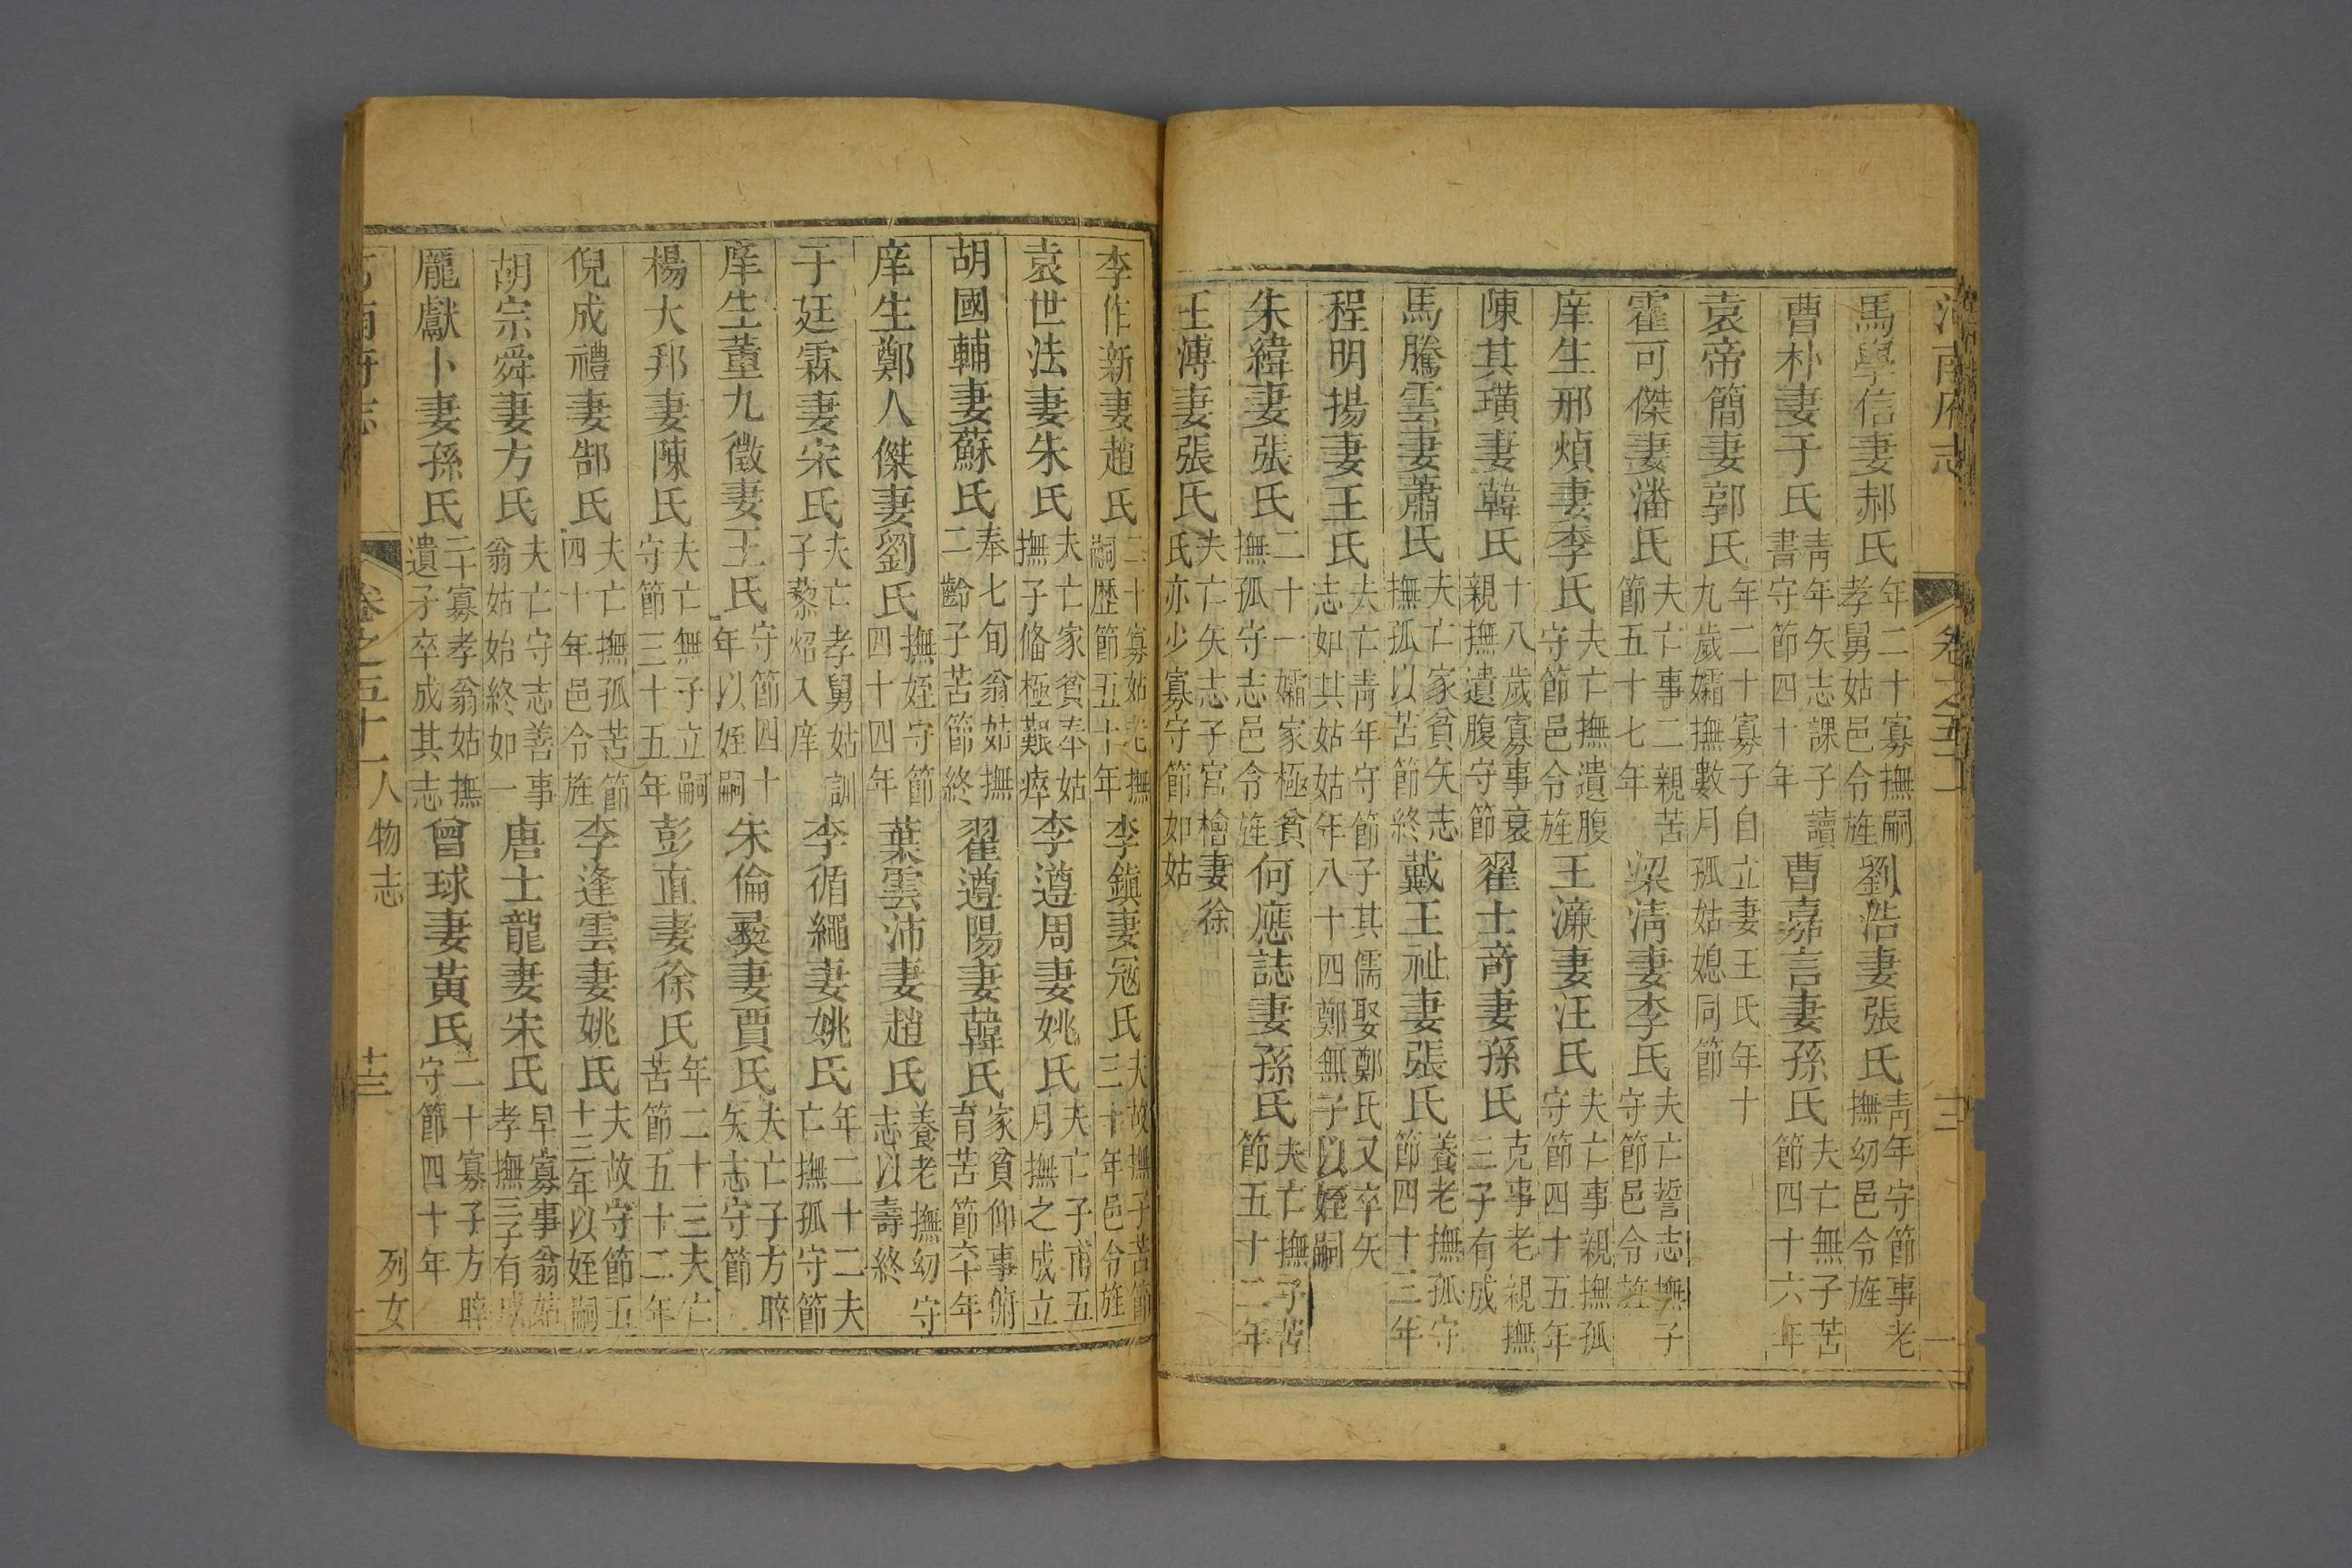 河南府志 卷之五十一
馬學信妻郝氏 年二十寡撫嗣孝舅姑邑令旌 劉浩妻張氏 青年守節事老撫幼邑令旌
曹朴妻于氏 青年矢志課子讀書守節四十年 曹嘉言妻孫氏 夫亡無子苦節四十六年
袁帝簡妻郭氏 年二十寡子自立妻王氏年十九歲孀撫數月孤姑媳同節
霍可傑妻潘氏 夫亡事二親苦節五十七年 梁淸妻李氏 夫亡誓志撫子守節邑令旌
庠生邢煩妻李氏 夫亡撫遺腹守節邑令旌 王濂妻汪氏 夫亡事親撫孤守節四十五年
陳其璜妻韓氏 十八歲寡事衰親撫遺腹守節 翟士奇妻孫氏 克事老親撫三子有成
馬騰雲妻蕭氏 夫亡家貧矢志撫孤以苦節終 戴王祉妻張氏 養老撫孤守節四十三年
程明揚妻王氏 夫亡靑年守節子其儒娶鄭氏又卒矢志如其姑姑年八十四鄭無子以姪嗣
朱緯妻張氏 二十一孀家極貧撫孤守志邑令旌 何應誌妻孫氏 夫亡撫子苦節五十二年
王溥妻張氏 夫亡矢志子宮檜妻徐氏亦少寡守節如姑
李作新妻趙氏 二十寡姑老撫嗣歷節五十年 李鎮妻冦氏 夫故撫子苦節三十年邑令旌
袁世法妻朱氏 夫亡家貧奉姑撫子備極艱瘁 李遵周妻姚氏 夫亡子甫五月撫之成立
胡國輔妻蘇氏 奉七旬翁姑撫二齡子苦節終 翟遵陽妻韓氏 家貧仰事俯育苦節六十年
庠生鄭人傑妻劉氏 撫姪守節四十四年 葉雲沛妻趙氏 養老撫幼守志以壽終
于廷霖妻宋氏 夫亡孝舅姑訓子藜炤入庠 李循繩妻姚氏 年二十二夫亡撫孤守節
庠生董九徵妻王氏 守節四十年以姪嗣 朱倫彜妻賈氏 夫亡子方晬矢志守節
楊大邦妻陳氏 夫亡無子立嗣守節三十五年 彭直妻徐氏 年二十三夫亡苦節五十二年
倪成禮妻郜氏 夫亡撫孤苦節四十年邑令旌 李逢雲妻姚氏 夫故守節五十三年以姪嗣
胡宗舜妻方氏 夫亡守志善事翁姑始終如一 唐士龍妻宋氏 早寡事翁姑孝撫三子有成
龐獻卜妻孫氏 二十寡孝翁姑撫遺子卒成其志 曾球妻黃氏 二十寡子方晬守節四十年
河南府志 卷之五十一 人物志 十三 列女